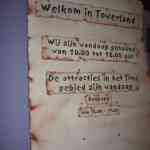 Welkom in Toverland
Wij zijn vandaag geopend
van 10.00 tot 18.00 uur
De attracties in het
gebied zijn vandaag